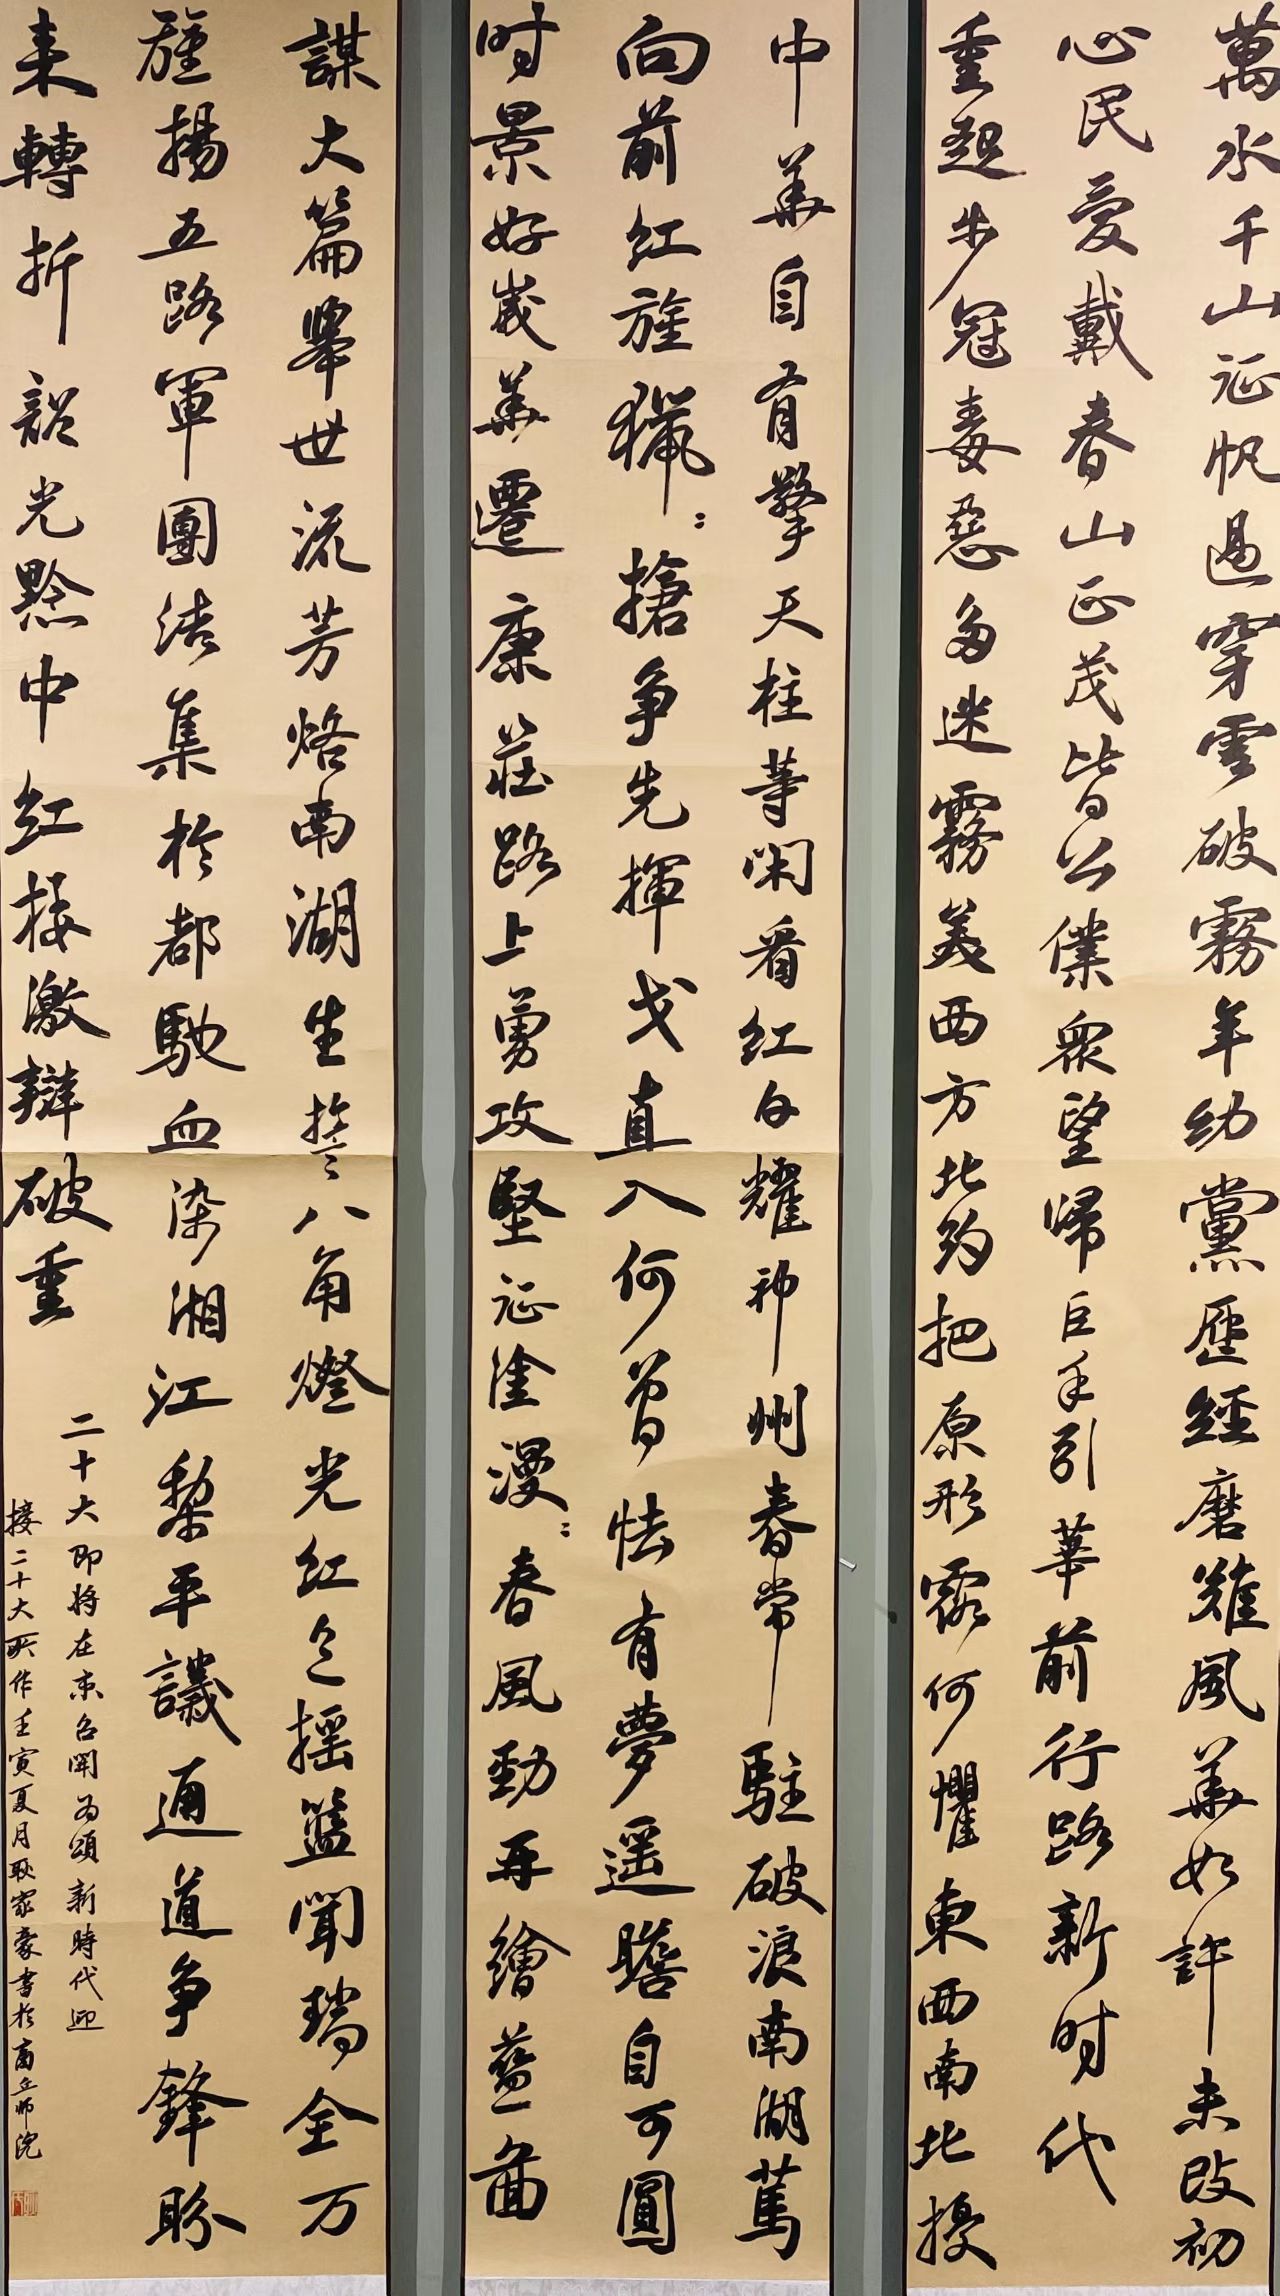 萬水千山征帆過穿雲破霧年幼黨歷經磨難風華如許未改初
心民愛戴春山正茂皆公僕衆望歸巨手引華前行路新时代
重起步冠毒惡多迷霧美西方北約把原形露何懼東西南北擾
中華自有擎天柱等闲看红白耀神州春常駐破浪南湖萬
向前红旌猎〻搶争先揮戈直入何曾怯有夢遥瞻自可圓
时景好歲華遷康莊路上勇攻堅征塗漫〻春風勁再繪藍畐
謀大篇舉世流芳烙南湖生誓八角燈光红色摇籃聞瑞金万
旌揚五路軍團结集於都馳血染湘江黎平議通道争鋒盼
来轉折韶光黔中红楼激辯破重
二十大即将在京召開为頌新時代迎
接二十大所作壬寅夏月耿家豪書於商丘师院